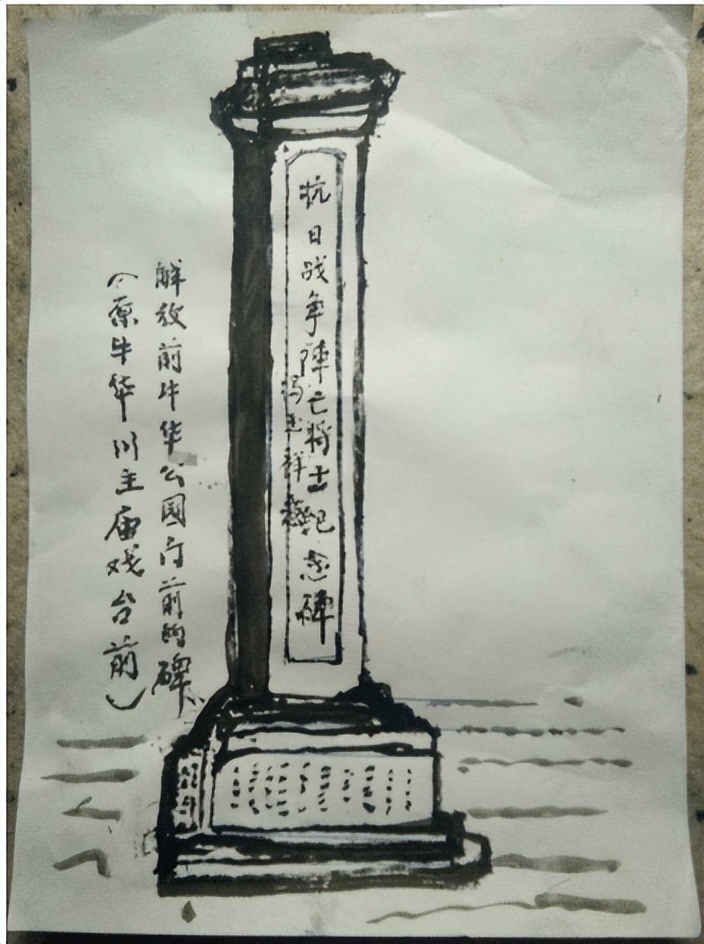 抗日战争陣亡将士紀念碑
冯玉祥題
解放前牛华公园门前的碑
（原牛华川主庙戏台前）